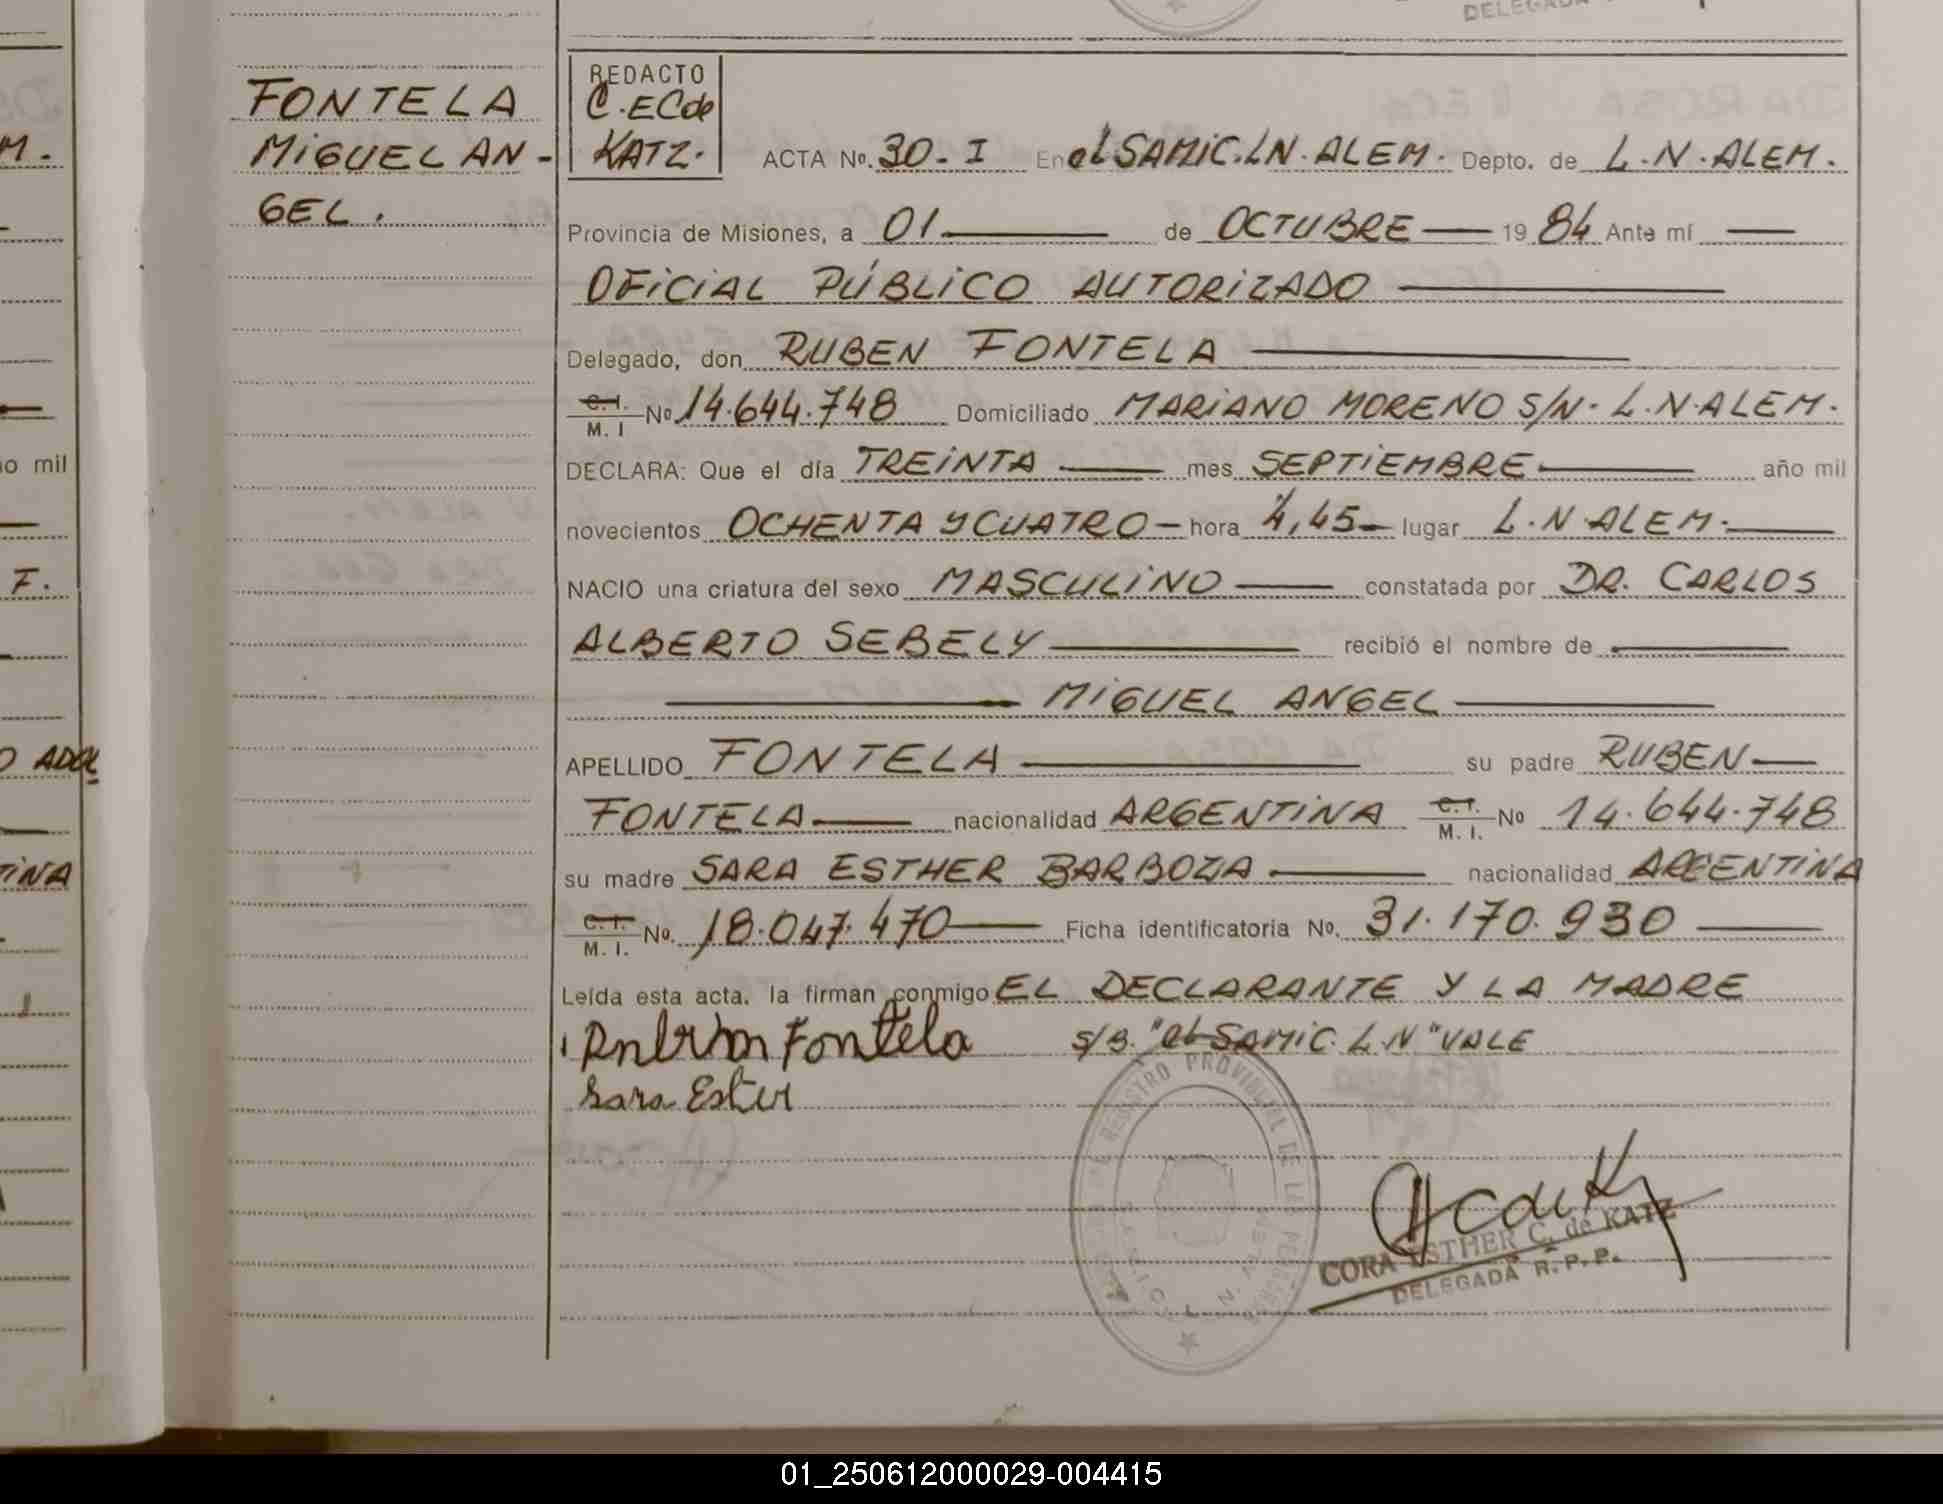 DELEGADA
FONTELA
MIGUEL AN-
GEL.
REDACTO
C.ECde
KATZ.
ACTA Nº. 30-I En el SAMIC. L.N. ALEM. Depto. de L.N. ALEM.
Provincia de Misiones, a 01 de OCTUBRE 1984 Ante mí
OFICIAL PÚBLICO AUTORIZADO
Delegado, don RUBEN FONTELA
C.I. M.I Nº 14.644.748 Domiciliado MARIANO MORENO S/N- L.N.ALEM.
DECLARA: Que el día TREINTA mes SEPTIEMBRE año mil
novecientos OCHENTA Y CUATRO - hora 4,45 lugar L.N.ALEM.
NACIO una criatura del sexo MASCULINO constatada por DR. CARLOS
ALBERTO SEBELY recibió el nombre de
MIGUEL ANGEL
APELLIDO FONTELA su padre RUBEN
FONTELA nacionalidad ARGENTINA C.I. M.I. Nº 14.644.748
su madre SARA ESTHER BARBOZA nacionalidad ARGENTINA
C.I. M.I. Nº. 18.047.470 Ficha identificatoria Nº. 31.170.930
Leída esta acta, la firman conmigo EL DECLARANTE Y LA MADRE
Fontela S/B. "el SAMIC. L.N" VALE
Sara Ester
REGISTRO PROVINCIAL DE LAS PERSONAS
CORA ESTHER C. de KATZ
DELEGADA R.P.P.
M.
o mil
F.
O ADOL
TINA
01_250612000029-004415